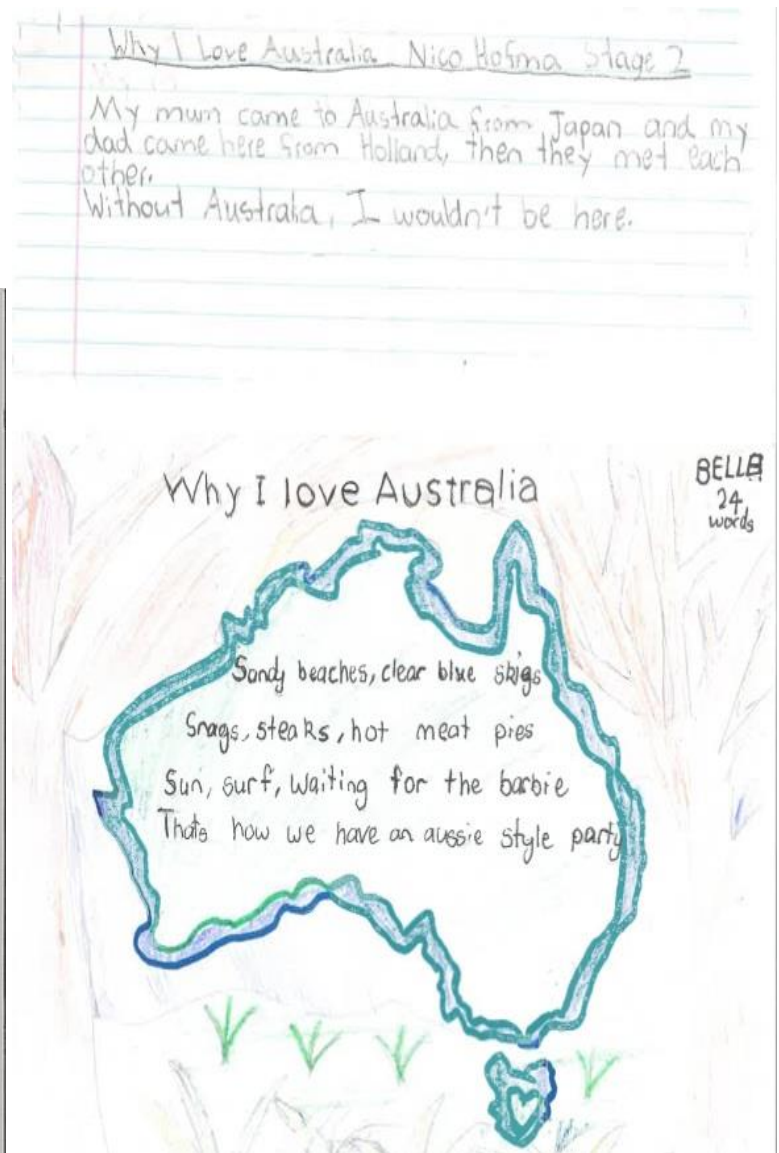 Why I Love Australia Nico Hofma Stage 2
My mum came to Australia from Japan and my
dad came here from Holland, then they met each
other.
Without Australia, I wouldn't be here.
Why I love Australia
BELLA
24
words
Sandy beaches, clear blue skigs
Snags, steaks, hot meat pies
Sun, surf, waiting for the barbie
Thats how we have an aussie style party